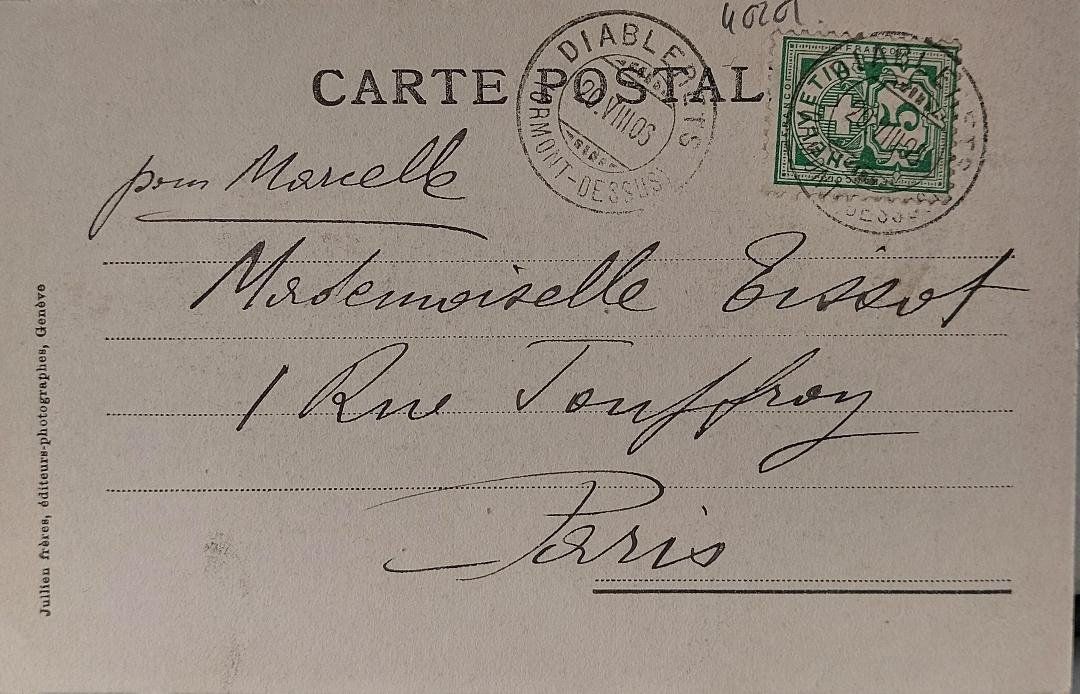 CARTE POSTALE
DIABLERETS
20.VIII.06
(ORMONT-DESSUS)
FRANCO
5
DIABLERETS
pour Marcelle
Mademoiselle Tissot
1 Rue Jouffroy
Paris
Jullien frères, éditeurs-photographes, Genève